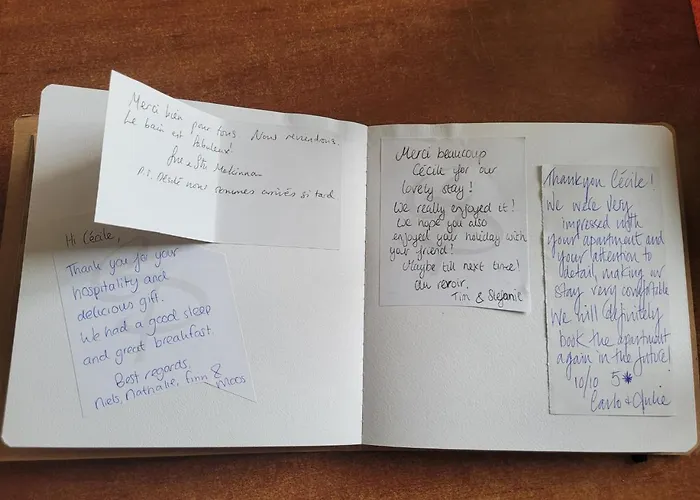 Merci bien pour tous Nous reviendrons.
Le bain est fabuleux
& Stu McKenna
P.S. Désolé nous sommes arrivés si tard
Hi Cécile,
Thank you for your
hospitality and
delicious gift.
We had a good sleep
and great breakfast.
Best regards,
Niels, Nathalie, Finn &
Moos
Merci beaucoup
Cécile for our
lovely stay!
We really enjoyed it!
We hope you also
enjoyed your holiday with
your friend!
Maybe till next time!
Au revoir.
Tim & Stefanie
Thankyou Cécile!
We were very
impressed with
your apartment and
your attention to
detail, making our
stay very comfortable
We will definitely
book the apartment
again in the future!
10/10 5*
Carlo + Julie